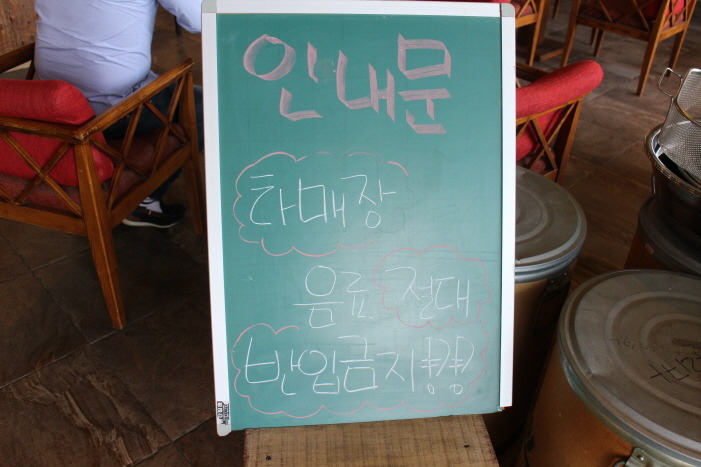 안내문
타매장
음료 절대
반입금지